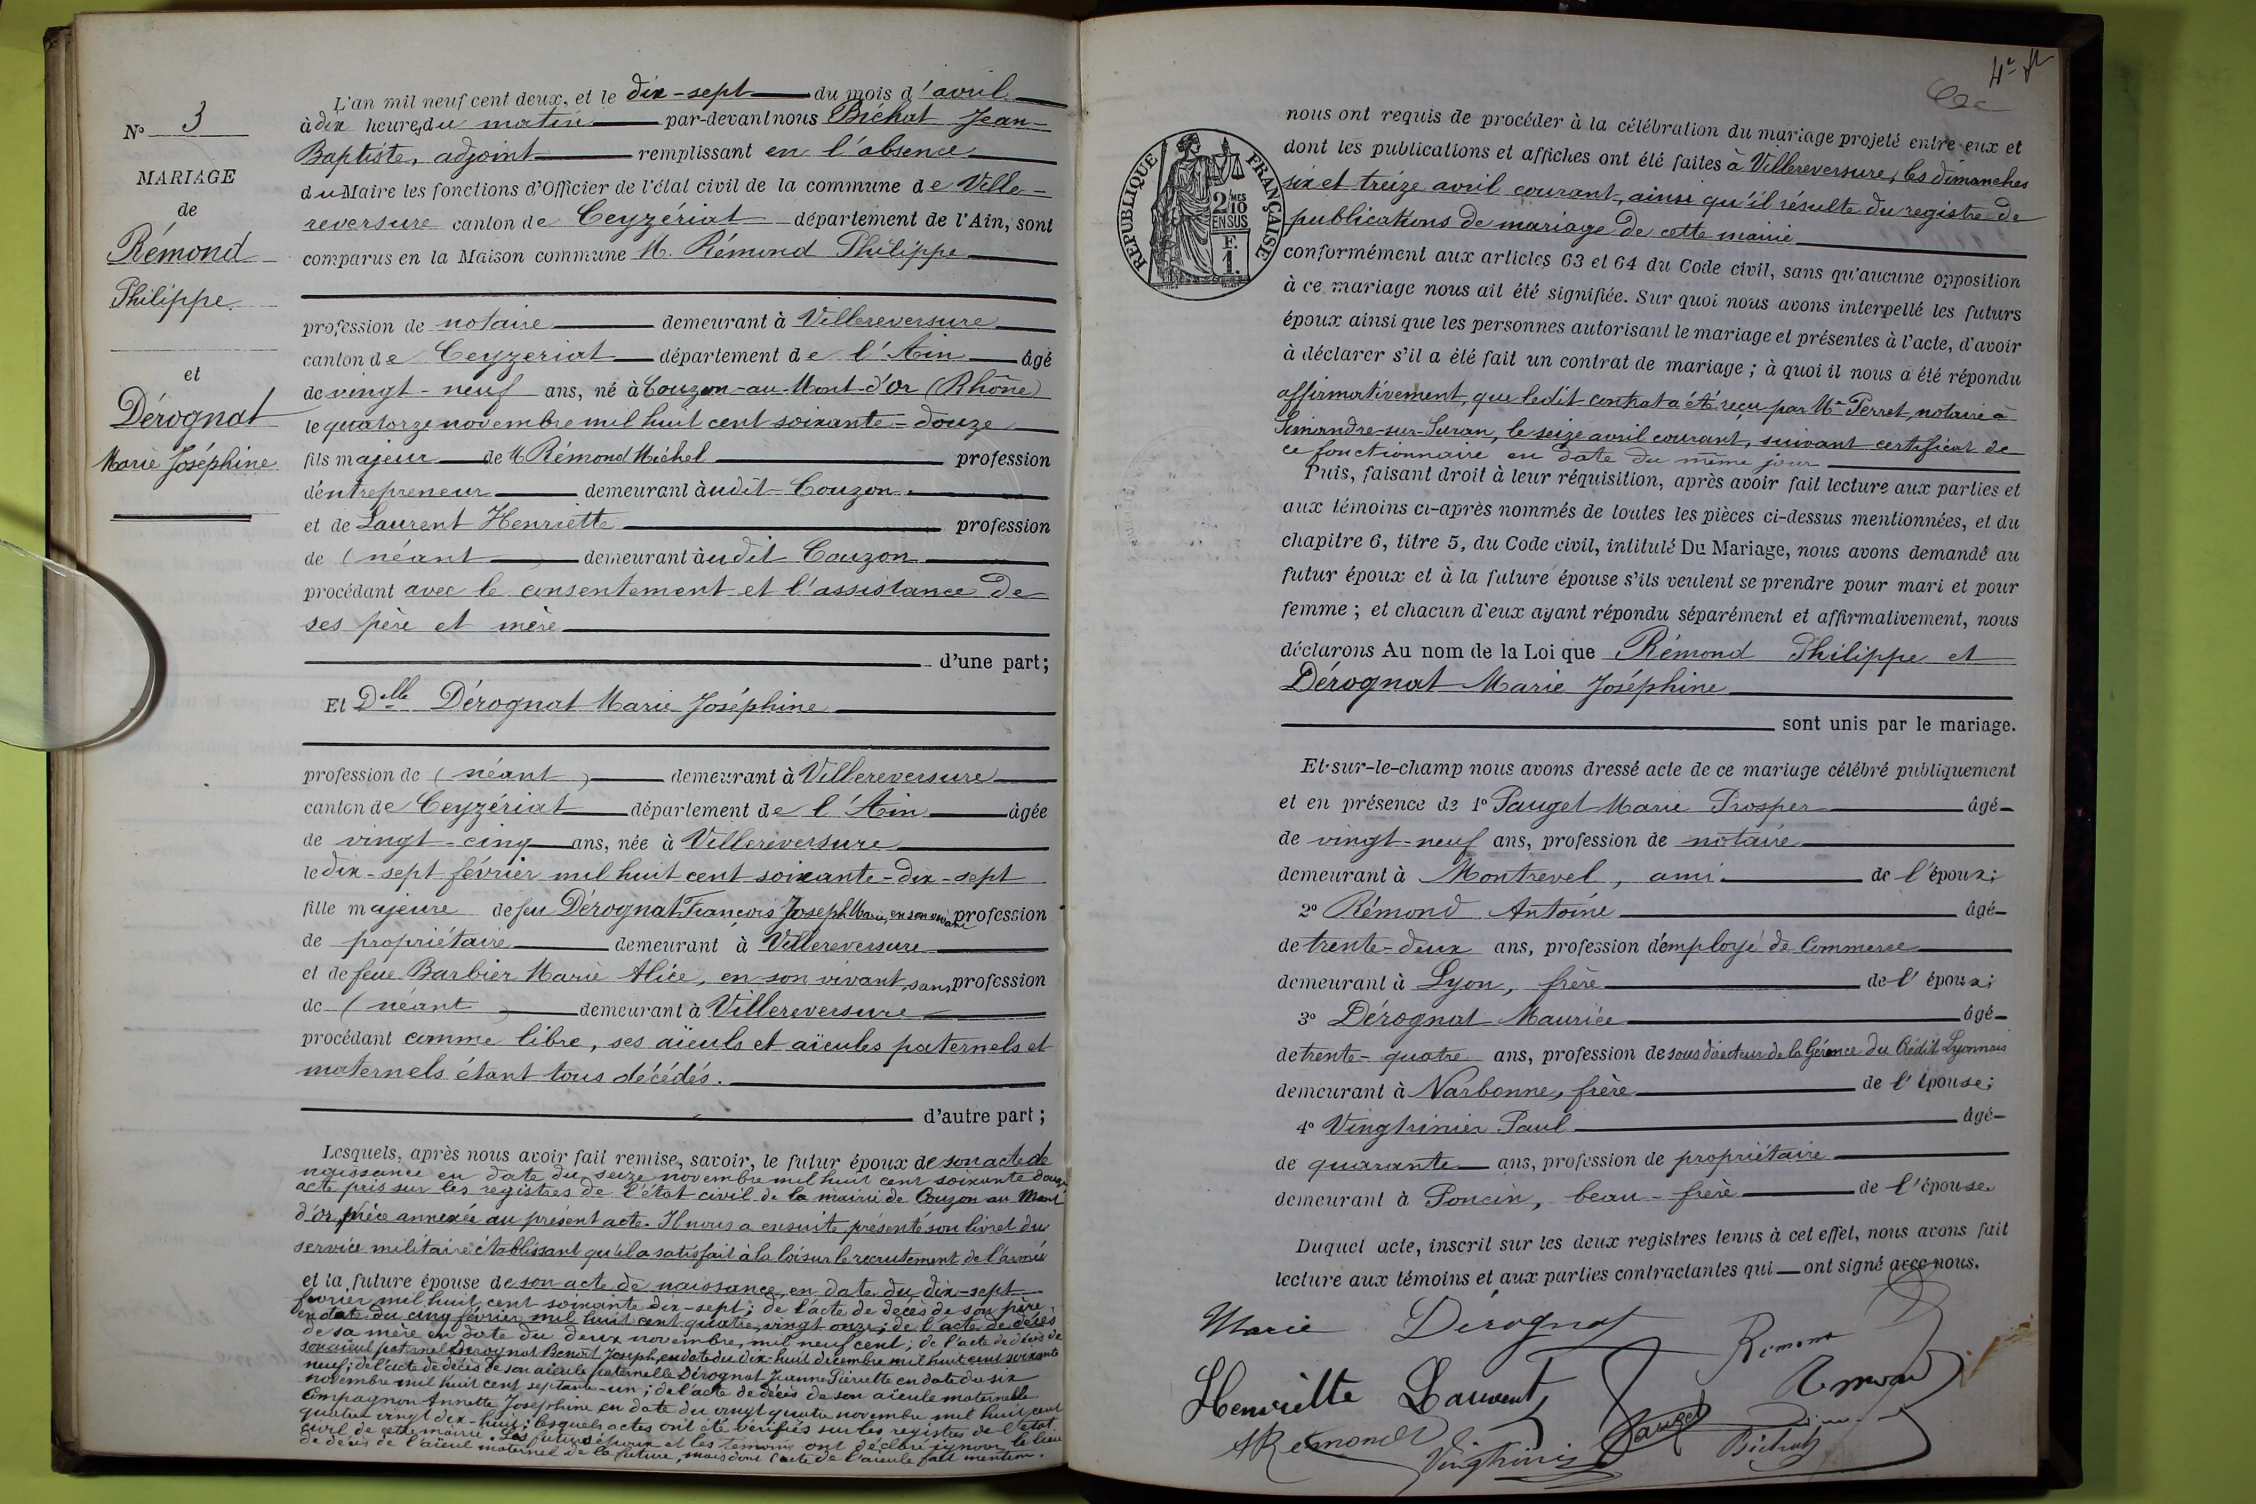 N° 3
MARIAGE
de
Rémond
Philippe
et
Dérognat
Marie Joséphine
L'an mil neuf cent deux, et le dix-sept du mois d'avril
à dix heures du matin par-devant nous Bichat Jean-
Baptiste, adjoint remplissant en l'absence
du Maire les fonctions d'Officier de l'état civil de la commune de Ville-
reversure canton de Ceyzériat département de l'Ain, sont
comparus en la Maison commune M. Rémond Philippe
profession de notaire demeurant à Villereversure
canton de Ceyzeriat département de l'Ain âgé
de vingt-neuf ans, né à Couzon-au-Mont-d'Or (Rhône)
le quatorze novembre mil huit cent soixante-douze
fils majeur de M Rémond Michel profession
d'entrepreneur demeurant àudit Couzon
et de Laurent Henriette profession
de (néant) demeurant àudit Couzon
procédant avec le consentement et l'assistance de
ses père et mère
d'une part;
Et Delle Dérognat Marie Joséphine
profession de (néant) demeurant à Villereversure
canton de Ceyzériat département de l'Ain âgée
de vingt-cinq ans, née à Villereversure
le dix-sept février mil huit cent soixante-dix-sept
fille majeure de feu Dérognat François Joseph Marie, en son vivant profession
de propriétaire demeurant à Villereversure
et de feue Barbier Marie Alice, en son vivant, sans profession
de (néant) demeurant à Villereversure
procédant comme libre, ses aïeuls et aïeules paternels et
maternels étant tous décédés.
d'autre part;
Lesquels, après nous avoir fait remise, savoir, le futur époux de son acte de
naissance en date du seize novembre mil huit cent soixante douze
acte pris sur les registres de l'état civil de la mairie de Couzon au Mont
d'or, pièce annexée au présent acte. Il nous a ensuite présenté son livret du
service militaire établissant qu'il a satisfait à la loi sur le recrutement de l'armée
et la future épouse de son acte de naissance, en date du dix-sept
février mil huit cent soixante dix-sept; de l'acte de décès de son père
en date du cinq février mil huit cent quatre vingt onze; de l'acte de décès
de sa mère en date du deux novembre, mil neuf cent; de l'acte de décès de
son aïeul paternel Dérognat Benoit Joseph, en date du dix-huit décembre mil huit cent soixante
neuf; de l'acte de décès de son aïeule paternelle Dérognat Jeanne Pierrette en date du six
novembre mil huit cent septante-un; de l'acte de décès de son aïeule maternelle
Compagnon Annette Joséphine en date du vingt quatre novembre mil huit cent
quatre vingt dix-huit; lesquels actes ont été vérifiés sur les registres de l'état
civil de cette mairie. Les futurs époux et les témoins ont déclaré ignorer le lieu
de décès de l'aïeul maternel de la future, mais dont l'acte de l'aïeule fait mention.
4e
RÉPUBLIQUE FRANÇAISE
2 MES
10
EN SUS
F.
1.
nous ont requis de procéder à la célébration du mariage projeté entre eux et
dont les publications et affiches ont été faites à Villereversure, les dimanches
six et treize avril courant, ainsi qu'il résulte du registre de
publications de mariage de cette mairie
conformément aux articles 63 et 64 du Code civil, sans qu'aucune opposition
à ce mariage nous ait été signifiée. Sur quoi nous avons interpellé les futurs
époux ainsi que les personnes autorisant le mariage et présentes à l'acte, d'avoir
à déclarer s'il a été fait un contrat de mariage; à quoi il nous a été répondu
affirmativement, que ledit contrat a été reçu par Me Perret, notaire à
Simandre-sur-Suran, le seize avril courant, suivant certificat de
ce fonctionnaire en date du même jour
Puis, faisant droit à leur réquisition, après avoir fait lecture aux parties et
aux témoins ci-après nommés de toutes les pièces ci-dessus mentionnées, et du
chapitre 6, titre 5, du Code civil, intitulé Du Mariage, nous avons demandé au
futur époux et à la future épouse s'ils veulent se prendre pour mari et pour
femme; et chacun d'eux ayant répondu séparément et affirmativement, nous
déclarons Au nom de la Loi que Rémond Philippe et
Dérognat Marie Joséphine
sont unis par le mariage.
Et sur-le-champ nous avons dressé acte de ce mariage célébré publiquement
et en présence de 1° Pauget Marie Prosper âgé
de vingt-neuf ans, profession de notaire
demeurant à Montrevel, ami de l'époux;
2° Rémond Antoine âgé
de trente-deux ans, profession d'employé de Commerce
demeurant à Lyon, frère de l'époux;
3° Dérognat Maurice âgé
de trente-quatre ans, profession de sous directeur de la Gérance du Crédit Lyonnais
demeurant à Narbonne, frère de l'épouse;
4° Vingtrinier Paul âgé
de quarante ans, profession de propriétaire
demeurant à Poncin, beau-frère de l'épouse
Duquel acte, inscrit sur les deux registres tenus à cet effet, nous avons fait
lecture aux témoins et aux parties contractantes qui ont signé avec nous.
Marie Dérognat Rémond
Henriette Laurent
A Rémond Vingtrinier Pauget Bichat